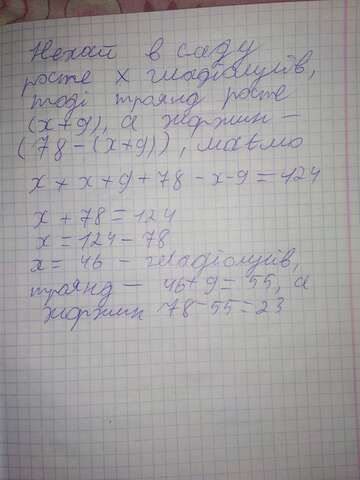 Нехай в саду
росте x гладіолусів,
тоді троянд росте
(x+9), а жоржин –
(78-(x+9)), маємо
x + x + 9 + 78 - x - 9 = 124
x + 78 = 124
x = 124 - 78
x = 46 - гладіолусів,
троянд - 46 + 9 = 55, а
жоржин 78 - 55 = 23